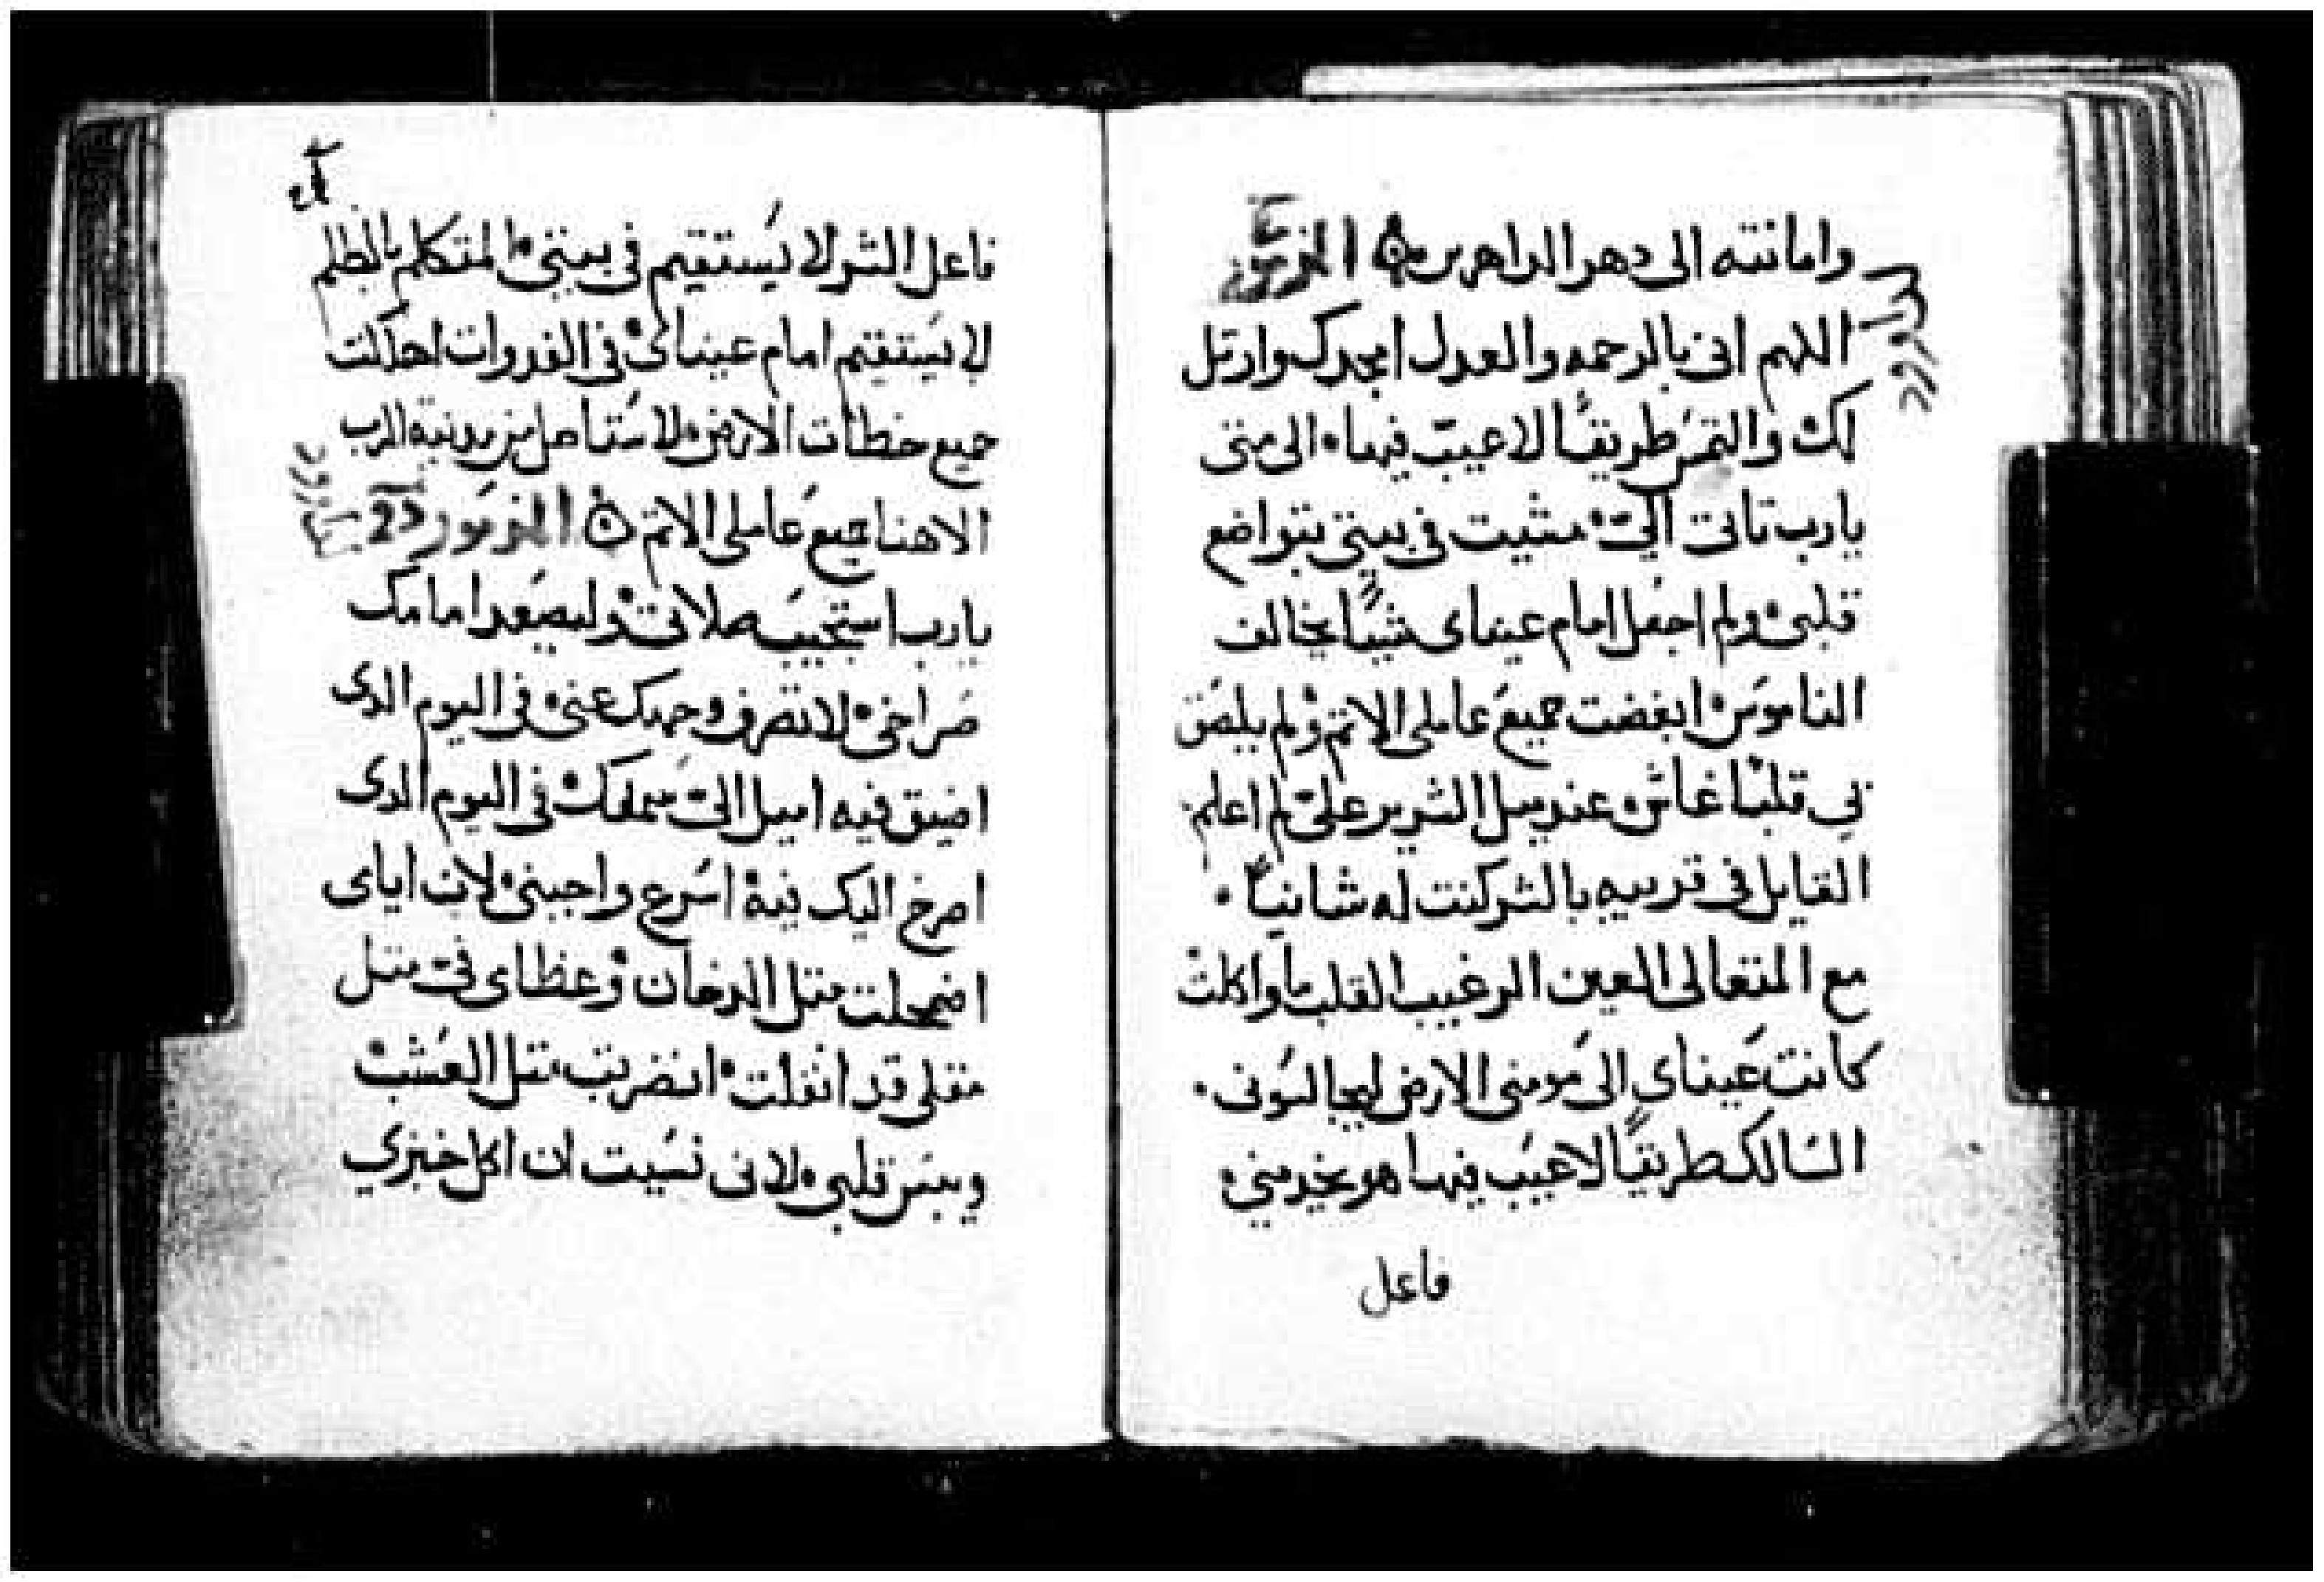 وامانته الى دهر الداهرين المزمور
لداوود
اللهم انى بالرحمه والعدل امجدك وارتل
لك والتمس طريقًا لا عيب فيها الى متى
يارب تاتى اليّ مشيت فى بيتى بتواضع
قلبى ولم اجعل امام عيناى شيًا يخالف
الناموس ابغضت جميع عاملى الاتم ولم يلصق
بى قلبًا غاش عند ميل الشرير علىّ لم اعلم
القايل فى قريبه بالشر كنت له شانيًا
مع المتعالى العين الرغيب القلب ما واكلت
كانت عيناى الى مومنى الارض ليجالسونى
السالك طريقًا لا عيب فيها هو يخدمنى
فاعل
فاعل الشر لا يستقيم فى بيتى المتكلم بالظلم
لا يستقيم امام عيناى فى الغدوات اهلكت
جميع خطات الارض لاستاصل من مدينة الرب
الاهنا جميع عاملى الاتم المزمور
يارب استجيب صلاتى وليصعد امامك
صراخى لا تصرف وجهك عنى فى اليوم الدى
اضيق فيه اميل الىّ سمعك فى اليوم الدى
اصرخ اليك فيه اسرع واجبنى لان اياى
اضمحلت متل الدخان وعظاى فى متل
مقلى قد انقلت انضربت متل العشب
ويبس قلبى لانى نسيت ان اكل خبزي